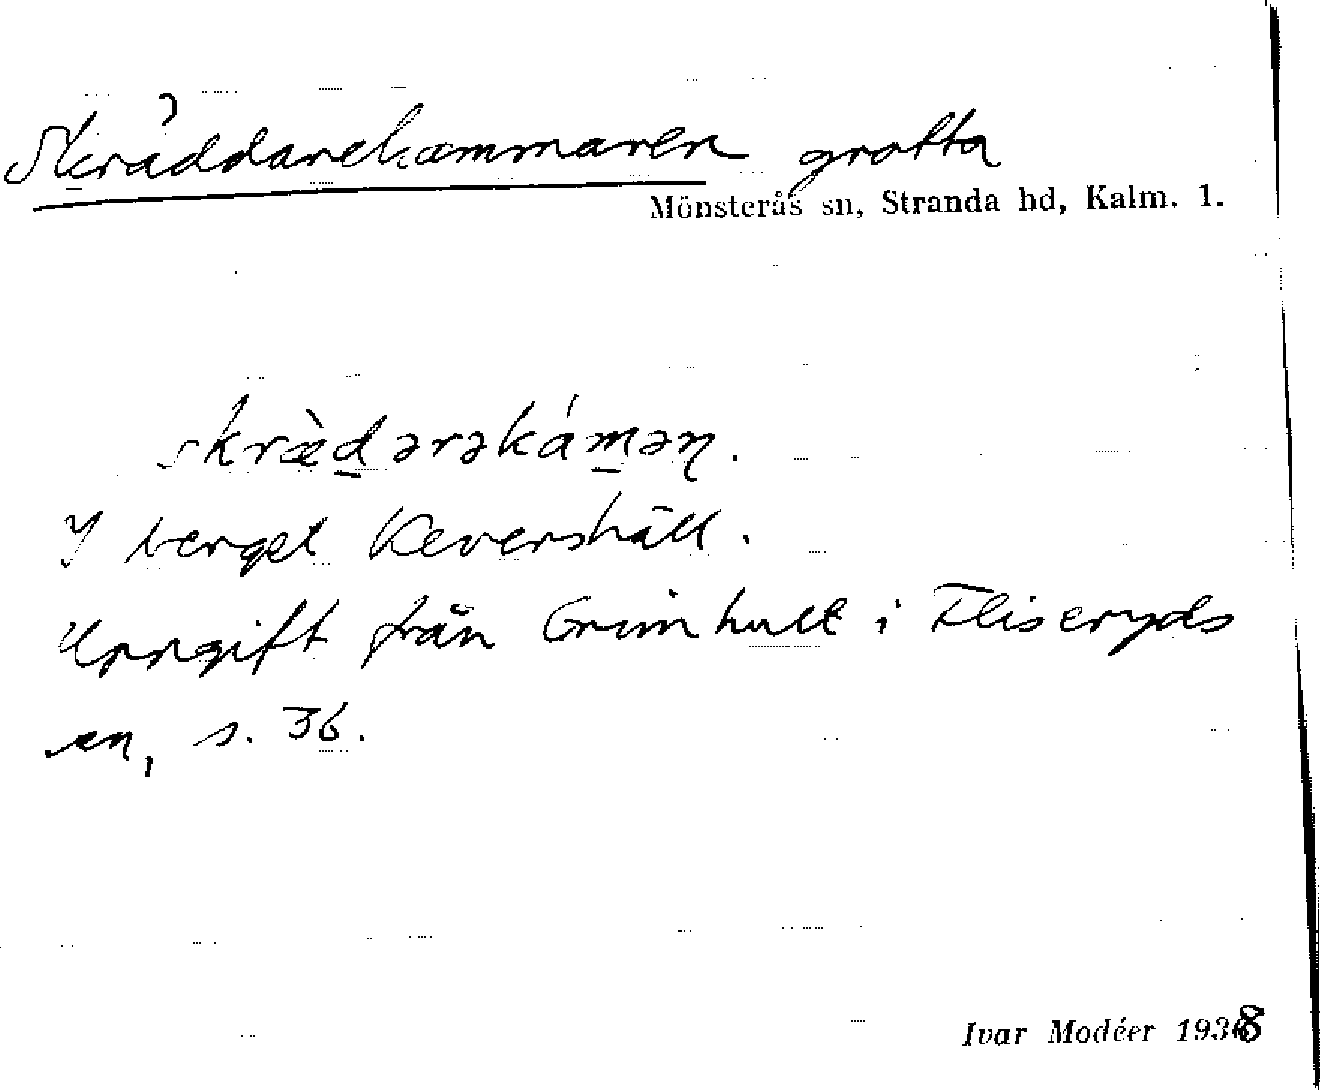 Skräddarekammaren grotta
Mönsterås sn, Stranda hd, Kalm. l.
skræ̀d̲ərəkám̲əņ.
I berget Kevershäll.
Uppgift från Grimhult i Fliseryds
sn, s. 36.
Ivar Modéer 1938